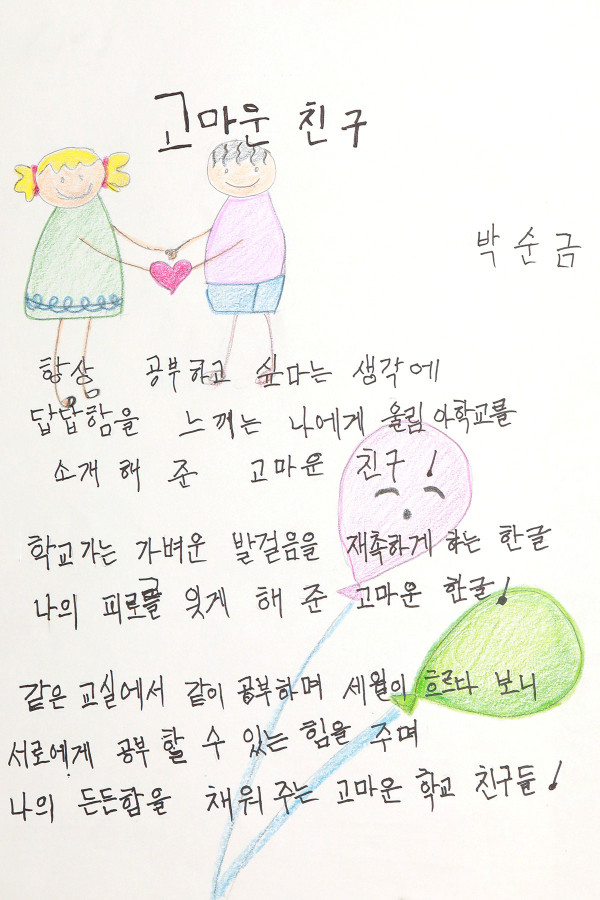 고마운 친구
박순금
항상 공부하고 싶다는 생각에
답답함을 느끼는 나에게 울림야학교를
소개 해 준 고마운 친구!
학교가는 가벼운 발걸음을 재촉하게 하는 한글
나의 피로를 잊게 해 준 고마운 한글!
같은 교실에서 같이 공부하며 세월이 흐르다 보니
서로에게 공부 할 수 있는 힘을 주며
나의 든든함을 채워 주는 고마운 학교 친구들!